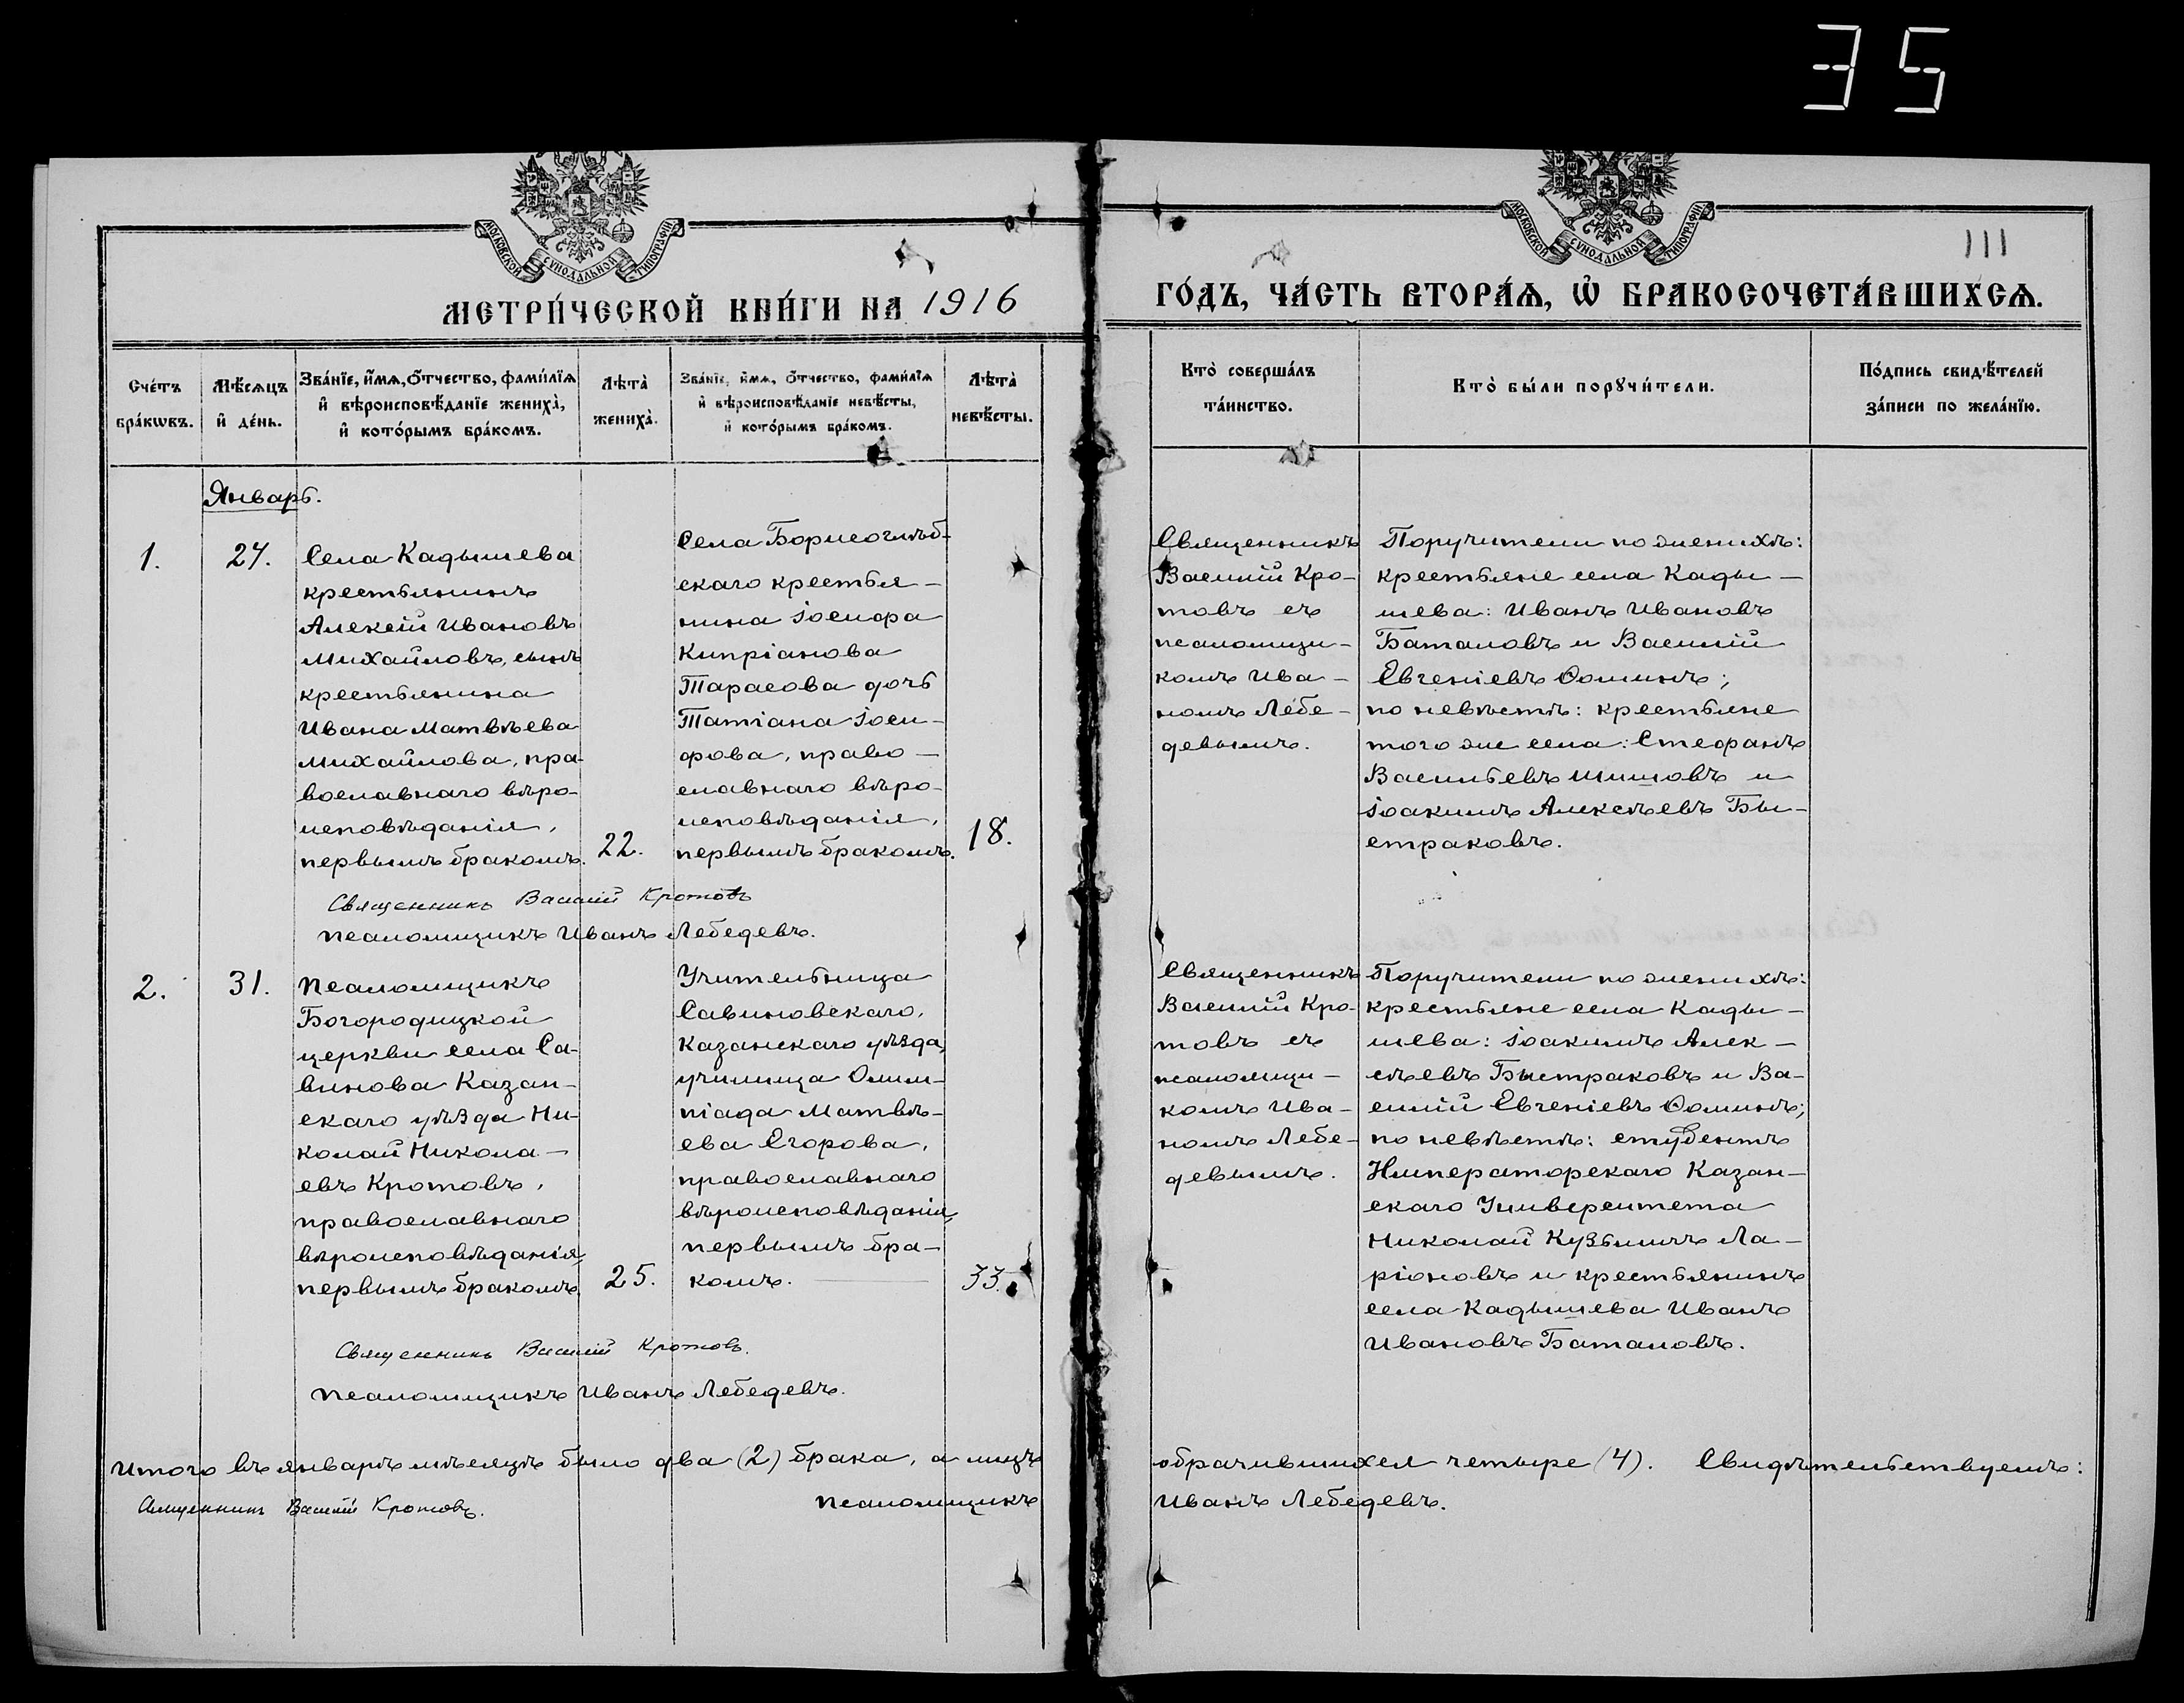 35
МОСКОВСКОЙ СѴНОДАЛЬНОЙ ТИПОГРАФІИ
МОСКОВСКОЙ СѴНОДАЛЬНОЙ ТИПОГРАФІИ
111
МЕТРИ́ЧЕСКОЙ КНИ́ГИ НА 1916
ГО́ДЪ, ЧА́СТЬ ВТОРА́Ѧ, Ѽ БРАКОСОЧЕТА́ВШИХСѦ.
Сче́тъ
бра́кѡвъ.
Мѣ́сѧцъ
и҆ де́нь.
Зва́нїе, и҆́мѧ, ѻ҆́тчество, фами́лїѧ
и҆ вѣроисповѣ́данїе жениха̀,
и҆ кото́рымъ бра́комъ.
Лѣта̀
жениха̀.
Зва́нїе, и҆́мѧ, ѻ҆́тчество, фами́лїѧ
и҆ вѣроисповѣ́данїе невѣ́сты,
и҆ кото́рымъ бра́комъ.
Лѣта̀
невѣ́сты.
Кто̀ соверша́лъ
та́инство.
Кто̀ бы́ли порꙋчи́тели.
По́дпись свидѣ́телей
за́писи по жела́нїю.
Январь.
1.
27.
Села Кадышева
крестьянинъ
Алексій Ивановъ
Михайловъ, сынъ
крестьянина
Ивана Матвѣева
Михайлова, пра-
вославнаго вѣро-
исповѣданія,
первымъ бракомъ.
22.
Села Борисоглѣб-
скаго крестья-
нина Іосифа
Кипріанова
Тарасова дочь
Татіана Іоси-
фова, право-
славнаго вѣро-
исповѣданія,
первымъ бракомъ.
18.
Священникъ
Василій Кро-
товъ съ
псаломщи-
комъ Ива-
номъ Лебе-
девымъ.
Поручители по женихѣ:
крестьяне села Кады-
шева: Иванъ Ивановъ
Баталовъ и Василій
Евгеніевъ Ѳоминъ;
по невѣстѣ: крестьяне
того же села: Стефанъ
Васильевъ Шишовъ и
Іоакимъ Алексѣевъ Бы-
страковъ.
Священникъ Василій Кротовъ
Псаломщикъ Иванъ Лебедевъ.
2.
31.
Псаломщикъ
Богородицкой
церкви села Са-
винова Казан-
скаго уѣзда Ни-
колай Никола-
евъ Кротовъ,
православнаго
вѣроисповѣданія,
первымъ бракомъ.
25.
Учительница
Савиновскаго,
Казанскаго уѣзда,
училища Олим-
піада Матвѣ-
ева Егорова,
православнаго
вѣроисповѣданія,
первымъ бра-
комъ.
33.
Священникъ
Василій Кро-
товъ съ
псаломщи-
комъ Ива-
номъ Лебе-
девымъ.
Поручители по женихѣ:
крестьяне села Кады-
шева: Іоакимъ Алек-
сѣевъ Быстраковъ и Ва-
силій Евгеніевъ Ѳоминъ;
по невѣстѣ: студентъ
Императорскаго Казан-
скаго Университета
Николай Кузьмичъ Ла-
ріоновъ и крестьянинъ
села Кадышева Иванъ
Ивановъ Баталовъ.
Священникъ Василій Кротовъ.
Псаломщикъ Иванъ Лебедевъ.
Итого въ январѣ мѣсяцѣ было два (2) брака, а лицъ обрачившихся четыре (4). Свидѣтельствуемъ:
Священникъ Василій Кротовъ. Псаломщикъ Иванъ Лебедевъ.